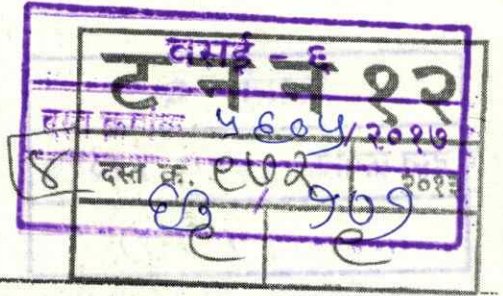 वसई - ६
ट न न १२
दस्त क्रमांक ५६०५/२०१७
४ दस्त क्र. ९७२ २०१३